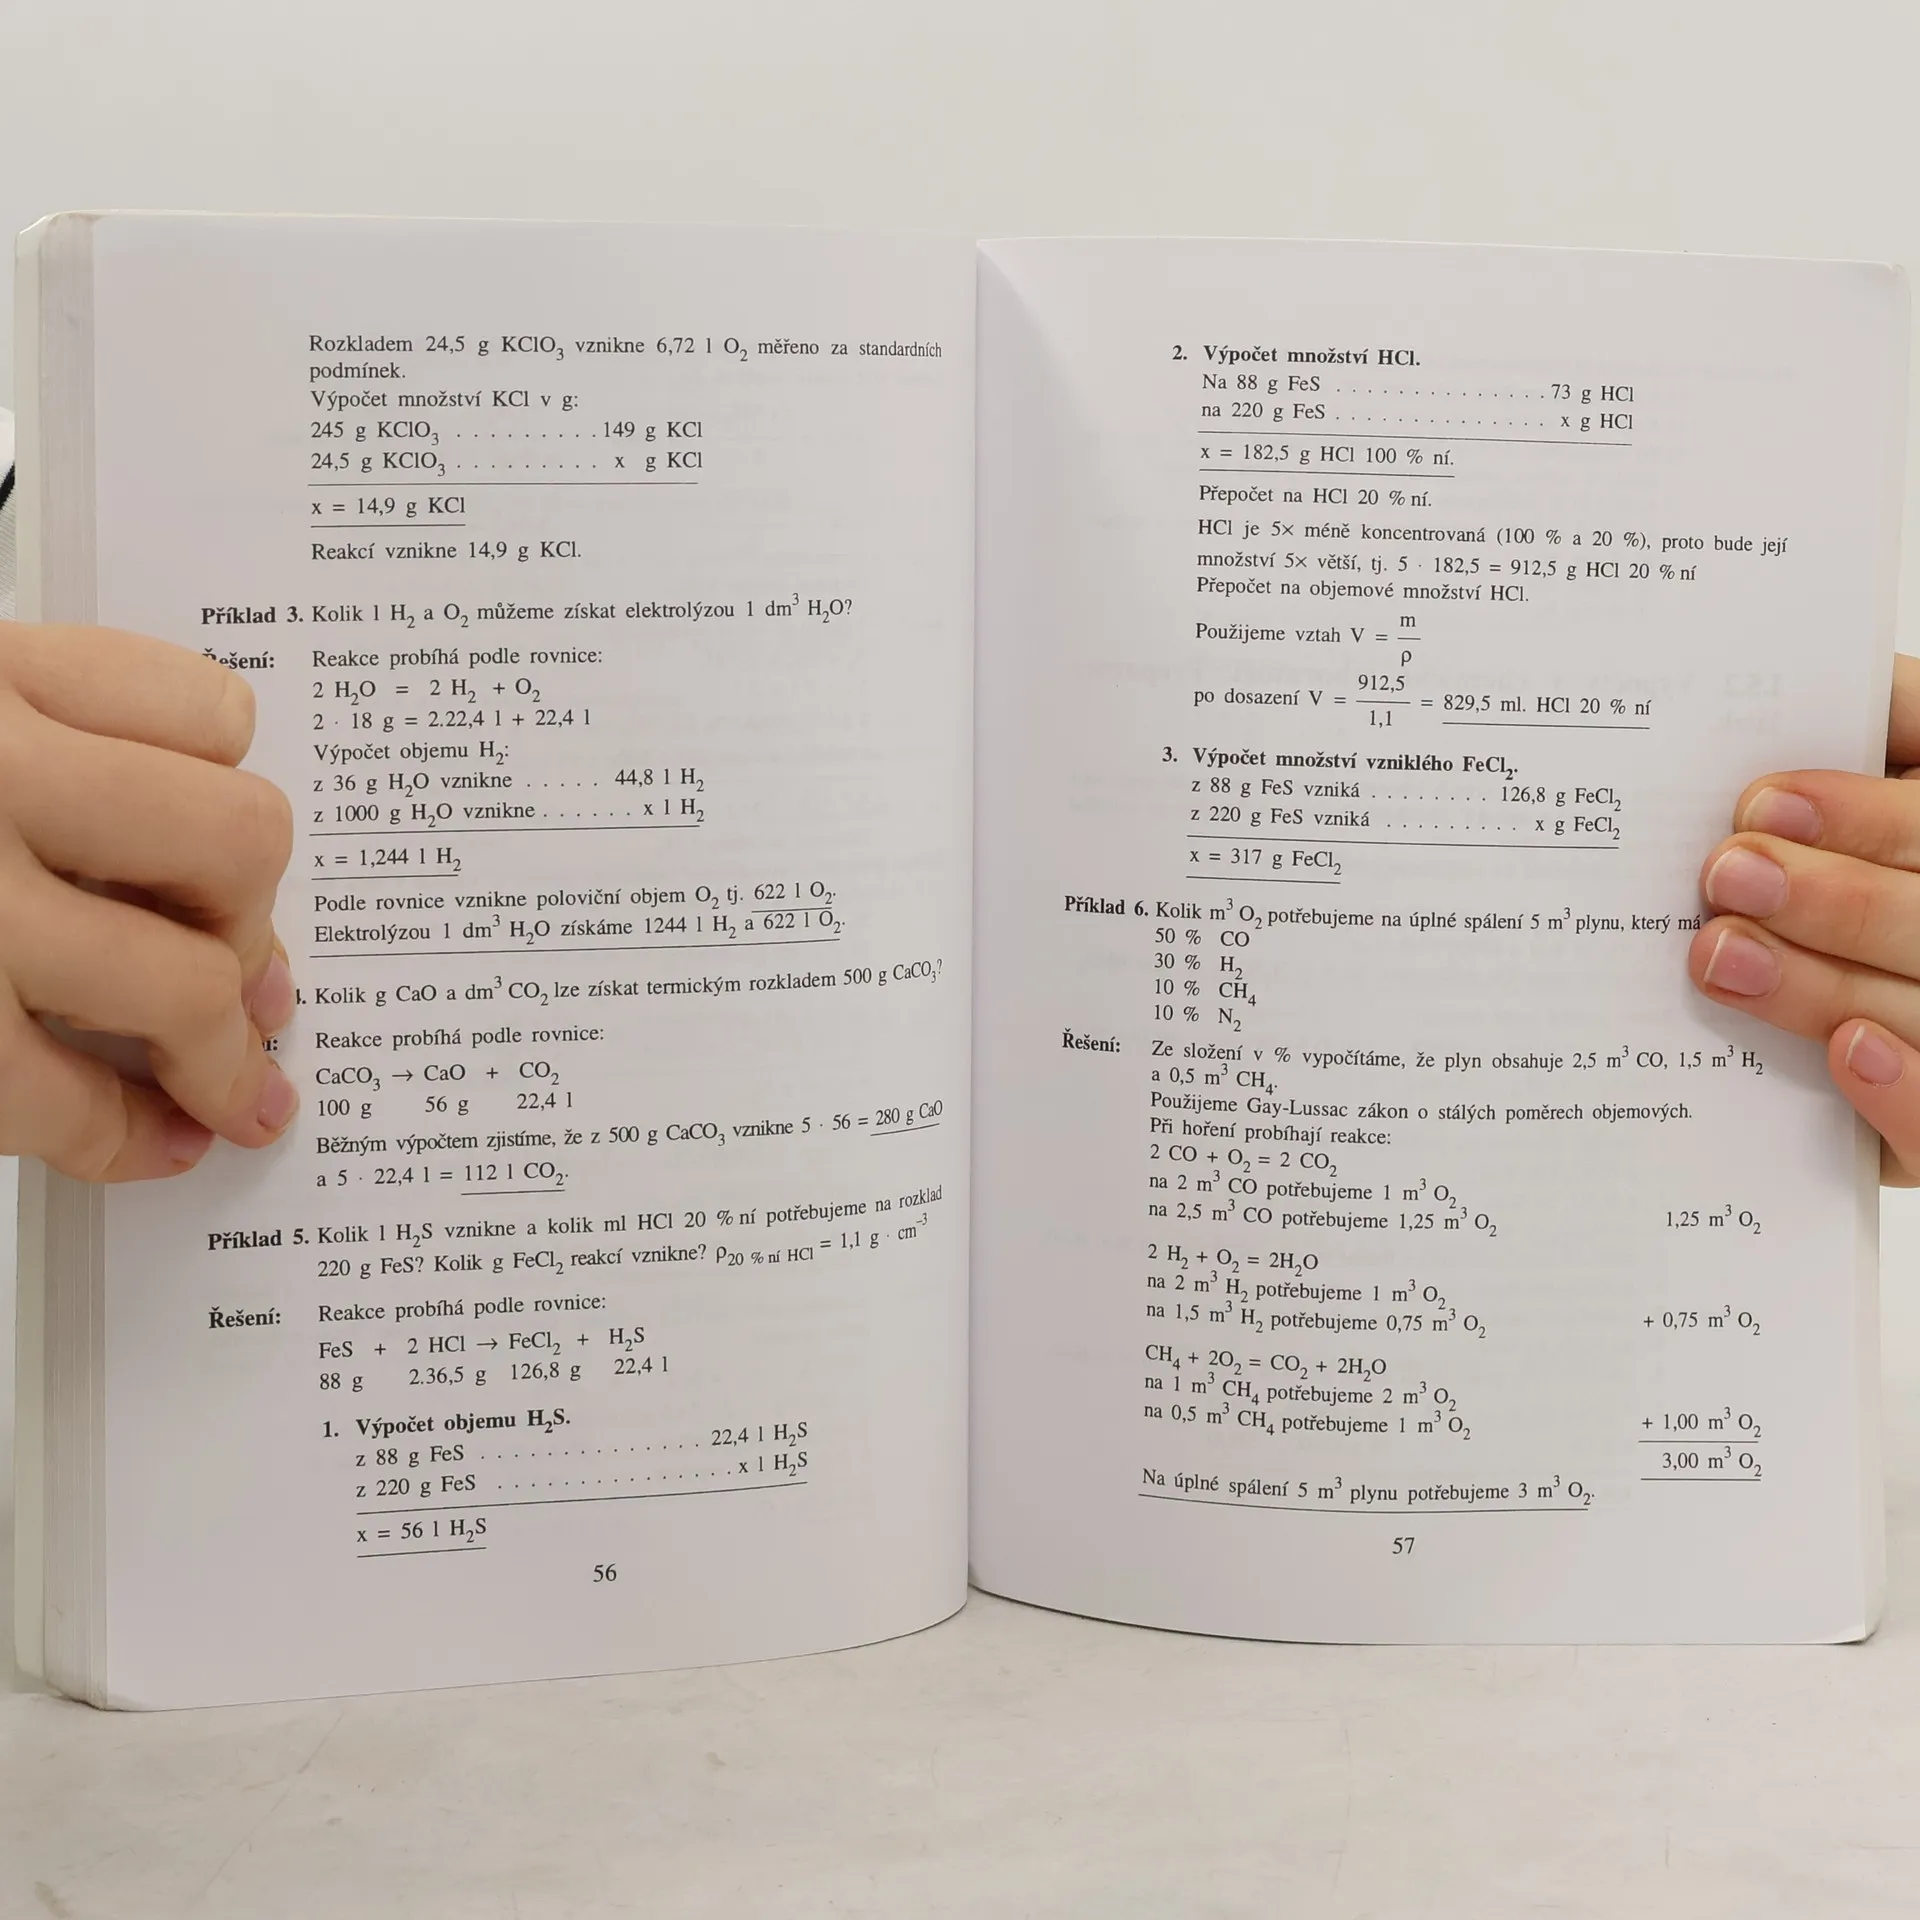 Rozkladem 24,5 g KClO₃ vznikne 6,72 l O₂ měřeno za standardních
podmínek.
Výpočet množství KCl v g:
245 g KClO₃ . . . . . . . . . 149 g KCl
24,5 g KClO₃ . . . . . . . . . x g KCl
x = 14,9 g KCl
Reakcí vznikne 14,9 g KCl.
Příklad 3. Kolik l H₂ a O₂ můžeme získat elektrolýzou 1 dm³ H₂O?
Řešení: Reakce probíhá podle rovnice:
2 H₂O = 2 H₂ + O₂
2 · 18 g = 2.22,4 l + 22,4 l
Výpočet objemu H₂:
z 36 g H₂O vznikne . . . . . 44,8 l H₂
z 1000 g H₂O vznikne . . . . . . x l H₂
x = 1,244 l H₂
Podle rovnice vznikne poloviční objem O₂ tj. 622 l O₂.
Elektrolýzou 1 dm³ H₂O získáme 1244 l H₂ a 622 l O₂.
Kolik g CaO a dm³ CO₂ lze získat termickým rozkladem 500 g CaCO₃?
Reakce probíhá podle rovnice:
CaCO₃ → CaO + CO₂
100 g 56 g 22,4 l
Běžným výpočtem zjistíme, že z 500 g CaCO₃ vznikne 5 · 56 = 280 g CaO
a 5 · 22,4 l = 112 l CO₂.
Příklad 5. Kolik l H₂S vznikne a kolik ml HCl 20 % ní potřebujeme na rozklad
220 g FeS? Kolik g FeCl₂ reakcí vznikne? ρ₂₀ % ní HCl = 1,1 g · cm⁻³
Řešení: Reakce probíhá podle rovnice:
FeS + 2 HCl → FeCl₂ + H₂S
88 g 2.36,5 g 126,8 g 22,4 l
1. Výpočet objemu H₂S.
z 88 g FeS . . . . . . . . . . . . . . 22,4 l H₂S
z 220 g FeS . . . . . . . . . . . . . . . x l H₂S
x = 56 l H₂S
56
2. Výpočet množství HCl.
Na 88 g FeS . . . . . . . . . . . . . . 73 g HCl
na 220 g FeS . . . . . . . . . . . . . . x g HCl
x = 182,5 g HCl 100 % ní.
Přepočet na HCl 20 % ní.
HCl je 5x méně koncentrovaná (100 % a 20 %), proto bude její
množství 5x větší, tj. 5 · 182,5 = 912,5 g HCl 20 % ní
Přepočet na objemové množství HCl.
Použijeme vztah V = m/ρ
po dosazení V = 912,5/1,1 = 829,5 ml. HCl 20 % ní
3. Výpočet množství vzniklého FeCl₂.
z 88 g FeS vzniká . . . . . . . . 126,8 g FeCl₂
z 220 g FeS vzniká . . . . . . . . . x g FeCl₂
x = 317 g FeCl₂
Příklad 6. Kolik m³ O₂ potřebujeme na úplné spálení 5 m³ plynu, který má
50 % CO
30 % H₂
10 % CH₄
10 % N₂
Řešení: Ze složení v % vypočítáme, že plyn obsahuje 2,5 m³ CO, 1,5 m³ H₂
a 0,5 m³ CH₄.
Použijeme Gay-Lussac zákon o stálých poměrech objemových.
Při hoření probíhají reakce:
2 CO + O₂ = 2 CO₂
na 2 m³ CO potřebujeme 1 m³ O₂
na 2,5 m³ CO potřebujeme 1,25 m³ O₂ 1,25 m³ O₂
2 H₂ + O₂ = 2H₂O
na 2 m³ H₂ potřebujeme 1 m³ O₂
na 1,5 m³ H₂ potřebujeme 0,75 m³ O₂ + 0,75 m³ O₂
CH₄ + 2O₂ = CO₂ + 2H₂O
na 1 m³ CH₄ potřebujeme 2 m³ O₂
na 0,5 m³ CH₄ potřebujeme 1 m³ O₂ + 1,00 m³ O₂
3,00 m³ O₂
Na úplné spálení 5 m³ plynu potřebujeme 3 m³ O₂.
57